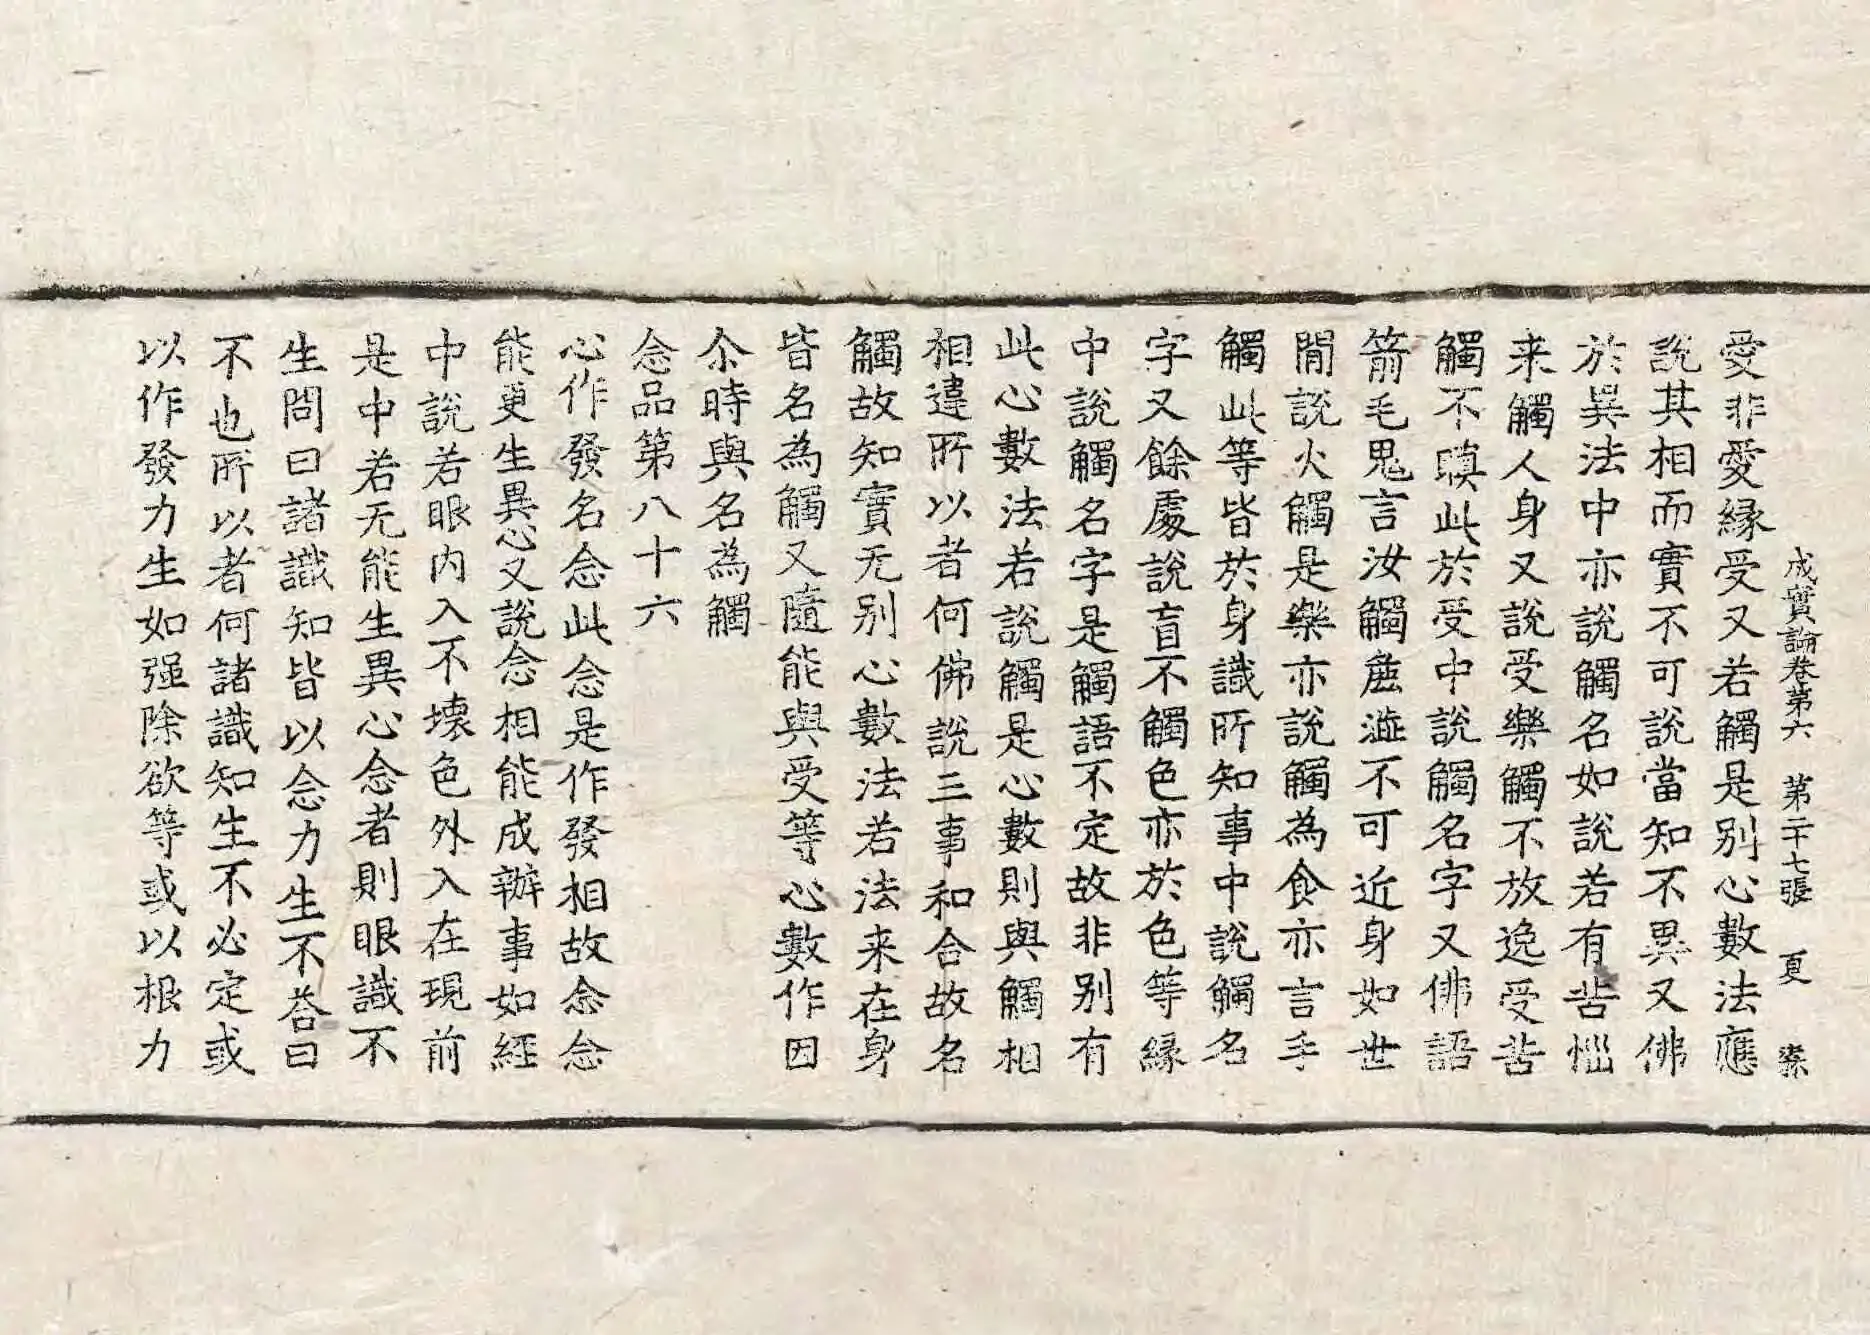 成實論卷第六 第二十七張 夏 索
愛非愛緣受又若觸是别心數法應
說其相而實不可說當知不異又佛
於異法中亦說觸名如說若有苦惱
来觸人身又說受樂觸不放逸受苦
觸不瞋此於受中說觸名字又佛語
箭毛鬼言汝觸麁澁不可近身如世
閒說火觸是樂亦說觸為食亦言手
觸此等皆於身識所知事中說觸名
字又餘處說盲不觸色亦於色等緣
中說觸名字是觸語不定故非别有
此心數法若說觸是心數則與觸相
相違所以者何佛說三事和合故名
觸故知實无别心數法若法来在身
皆名為觸又隨能與受等心數作因
尒時與名為觸
念品第八十六
心作發名念此念是作發相故念念
能更生異心又說念相能成辦事如經
中說若眼内入不壞色外入在現前
是中若无能生異心念者則眼識不
生問曰諸識知皆以念力生不荅曰
不也所以者何諸識知生不必定或
以作發力生如强除欲等或以根力